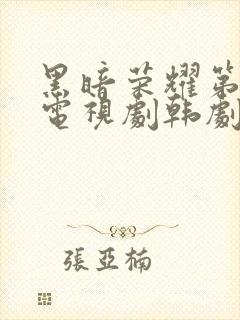 黑暗荣耀第
電視劇韩劇
張亞楠